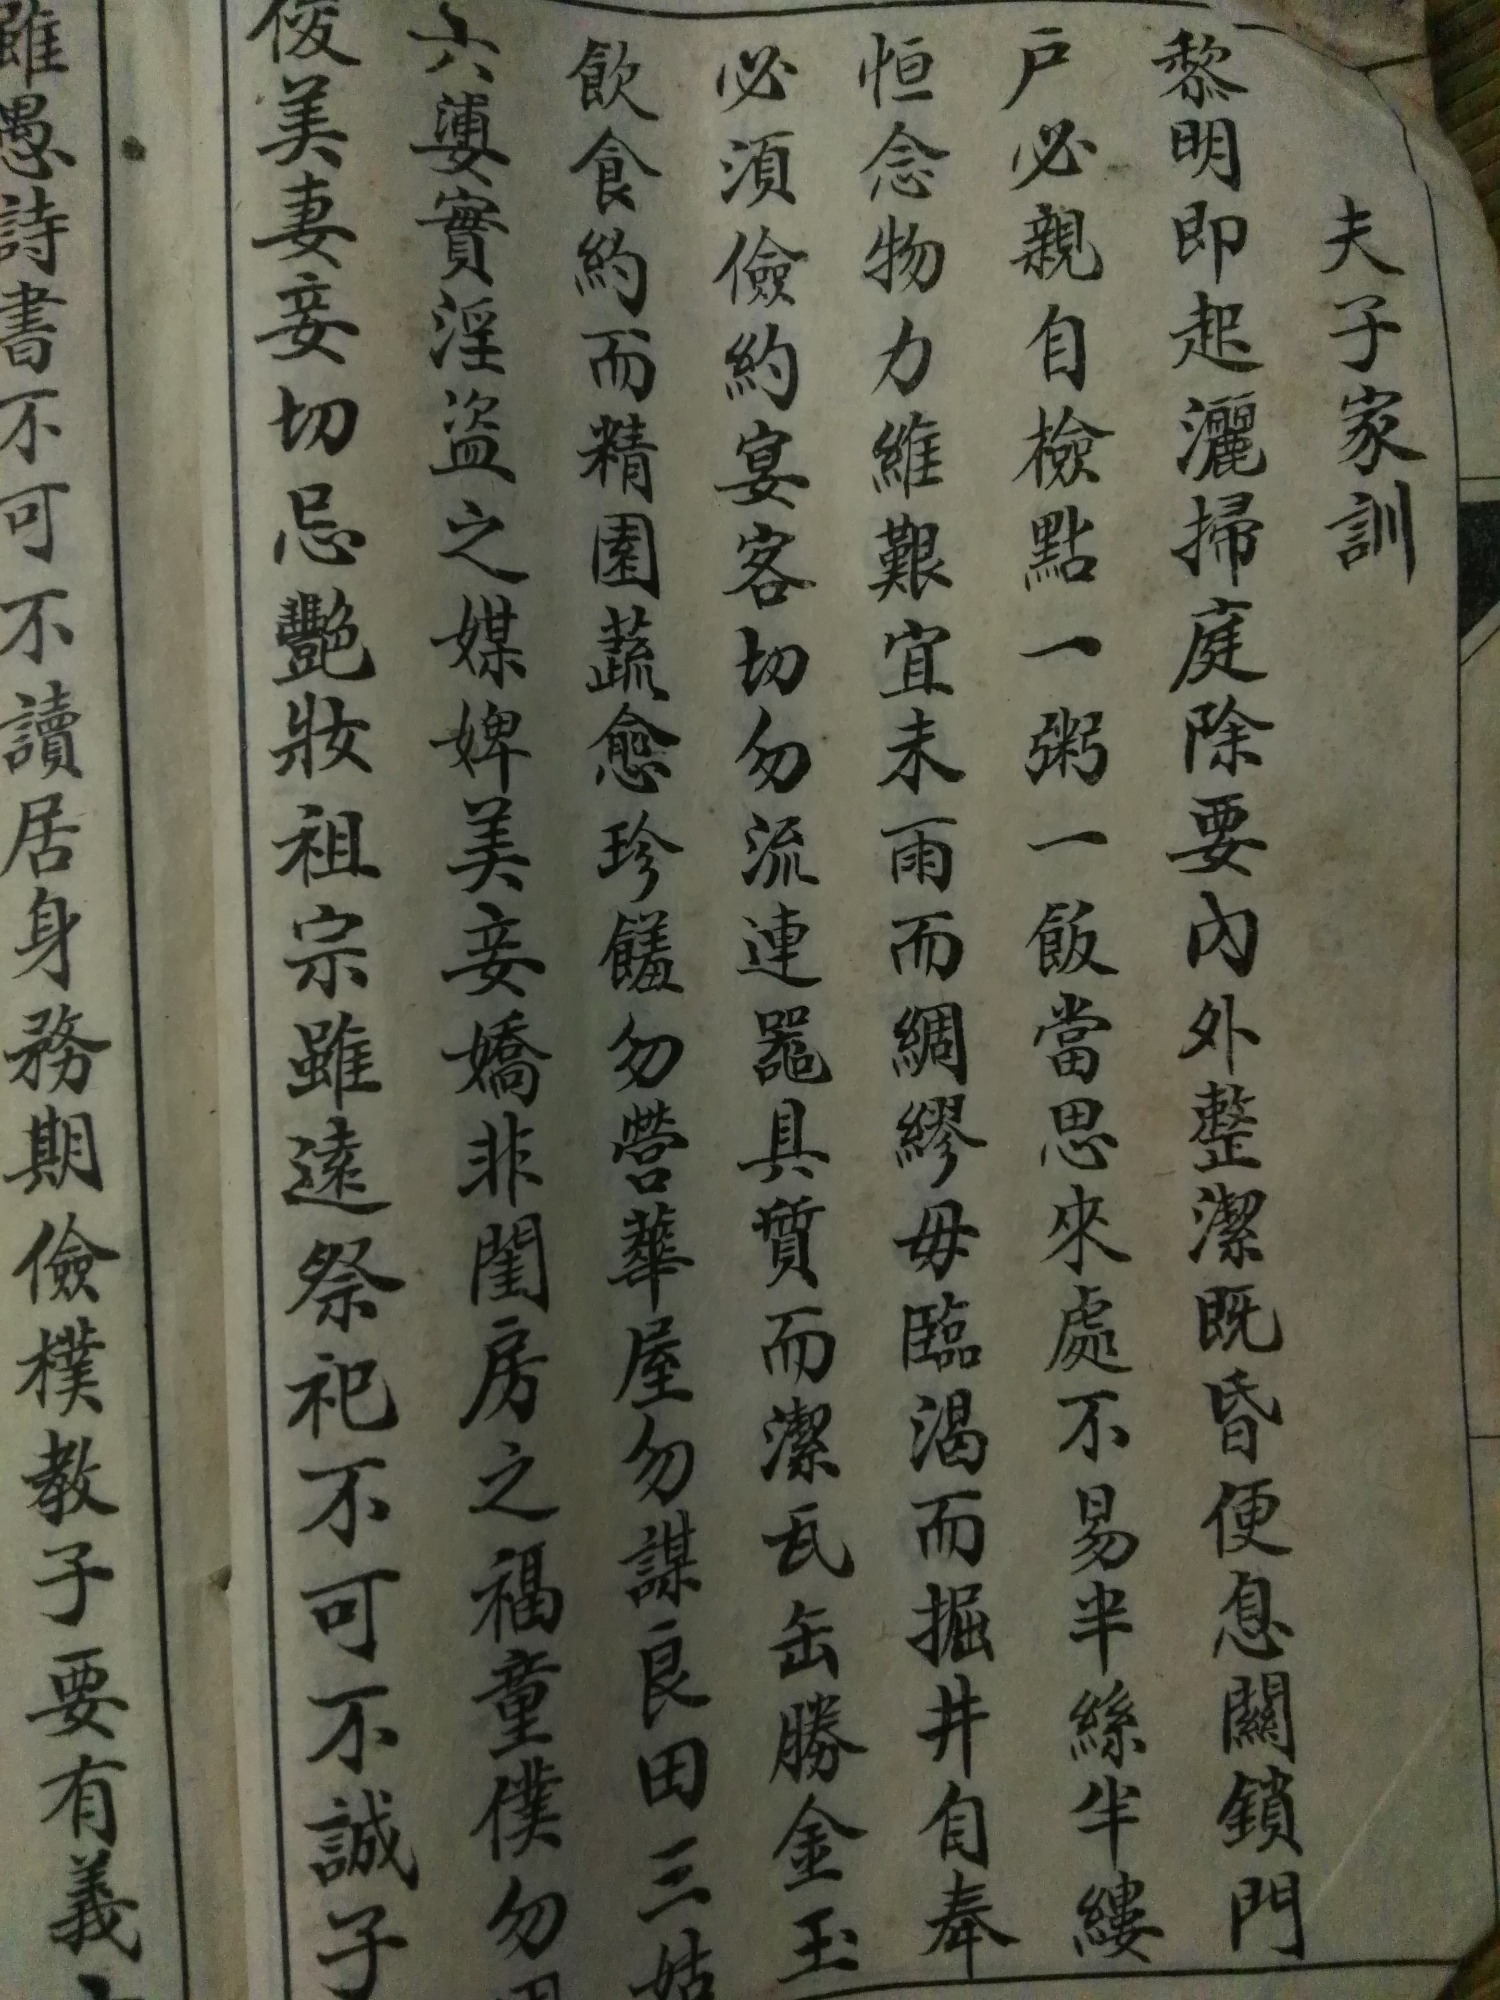 夫子家訓
黎明即起灑掃庭除要內外整潔既昏便息關鎖門
户必親自檢點一粥一飯當思來處不易半絲半縷
恒念物力維艱宜未雨而綢繆毋臨渴而掘井自奉
必須儉約宴客切勿流連器具質而潔瓦缶勝金玉
飲食約而精園蔬愈珍饈勿營華屋勿謀良田三姑
六婆實淫盗之媒婢美妾嬌非閨房之福童僕勿用
俊美妻妾切忌艷妝祖宗雖遠祭祀不可不誠子
雖愚詩書不可不讀居身務期儉樸教子要有義